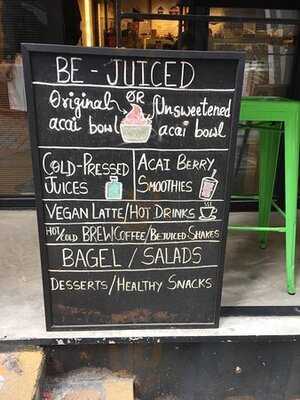 BE-JUICED
Original OR Unsweetened
acai bowl acai bowl
COLD-PRESSED ACAI BERRY
JUICES SMOOTHIES
VEGAN LATTE/HOT DRINKS
HOT/COLD BREWCOFFEE/BEJUICED SHAKES
BAGEL / SALADS
DESSERTS/HEALTHY SNACKS